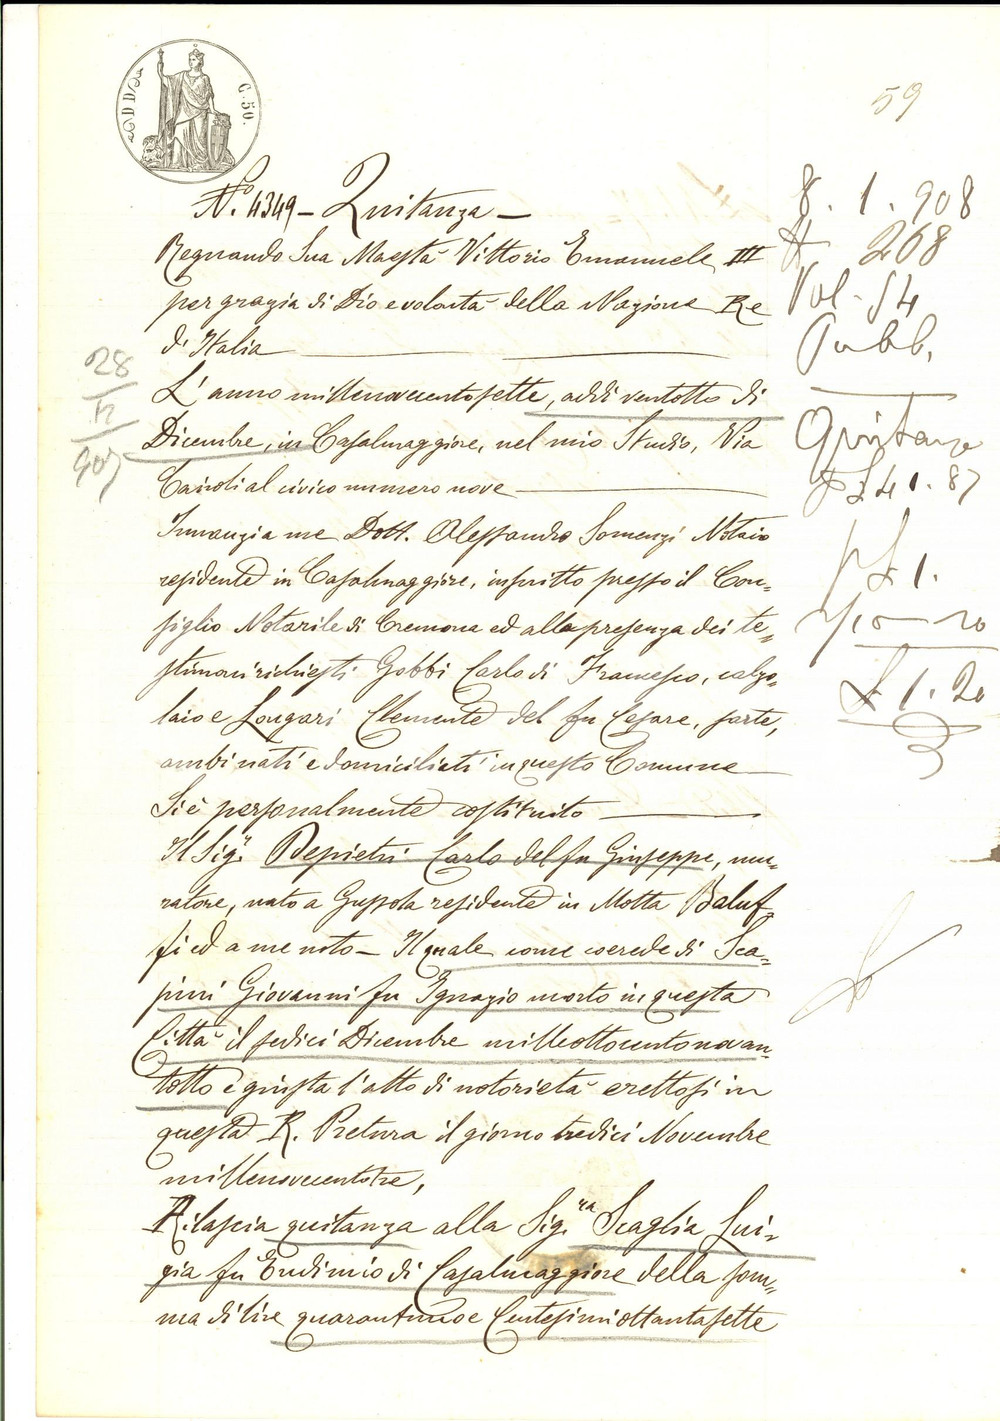 C. 50.
59
N.° 4349 - Quitanza -
Regnando Sua Maestà Vittorio Emanuele III
per grazia di Dio e volontà della Nazione Re
d'Italia
L'anno millenovecentosette, addì ventotto di
Dicembre, in Casalmaggiore, nel mio Studio, Via
Cairoli al civico numero nove
Innanzi a me Dott. Alessandro Somenzi Notaio
residente in Casalmaggiore, inscritto presso il Con-
siglio Notarile di Cremona ed alla presenza dei te-
stimoni richiesti Gobbi Carlo di Francesco, calzo-
laio e Longari Clemente del fu Cesare, sarte,
ambi nati e domiciliati in questo Comune
Si è personalmente costituito
Il Sig.r Depietri Carlo del fu Giuseppe, mu-
ratore, nato a Gussola residente in Motta Baluf-
fi ed a me noto - Il quale come coerede di Sca-
pini Giovanni fu Ignazio morto in questa
Città il sedici Dicembre milleottocentonovan-
totto e giusta l'atto di notorietà erettosi in
questa R. Pretura il giorno tredici Novembre
millenovecentotre,
Rilascia quitanza alla Sig.ra Scaglia Lui-
gia fu Eudimio di Casalmaggiore della som-
ma di lire quarantuno e Centesimi ottantasette
28
12
907
8. 1. 908
# 268
Vol. 54
Pubb.
Quitanza
£ 41.87
£ 1.
20
£ 1.20